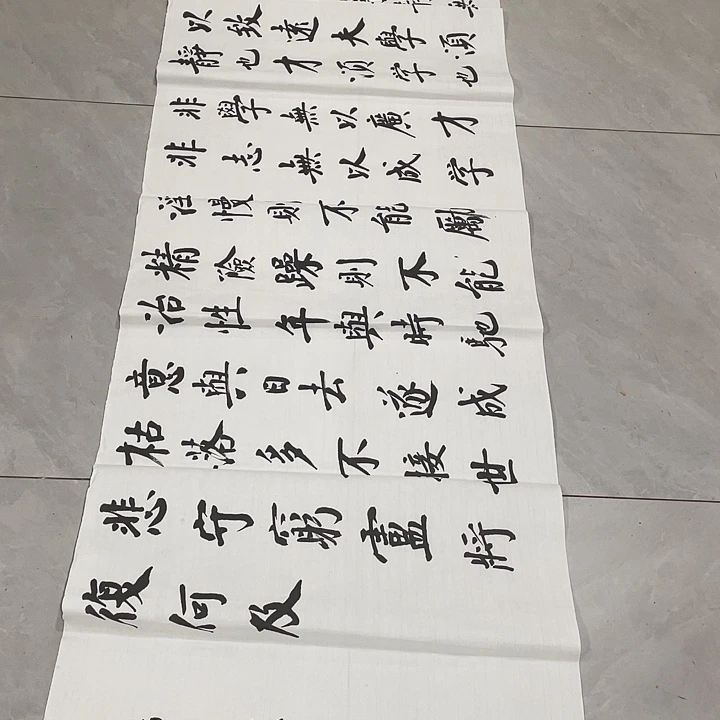 以致遠夫學湏
靜也才湏学也
非學無以廣才
非志無以成学
淫慢則不能勵
精險躁則不能
治性年與時馳
意與日去遂成
枯落多不接世
悲守窮廬將
復何及